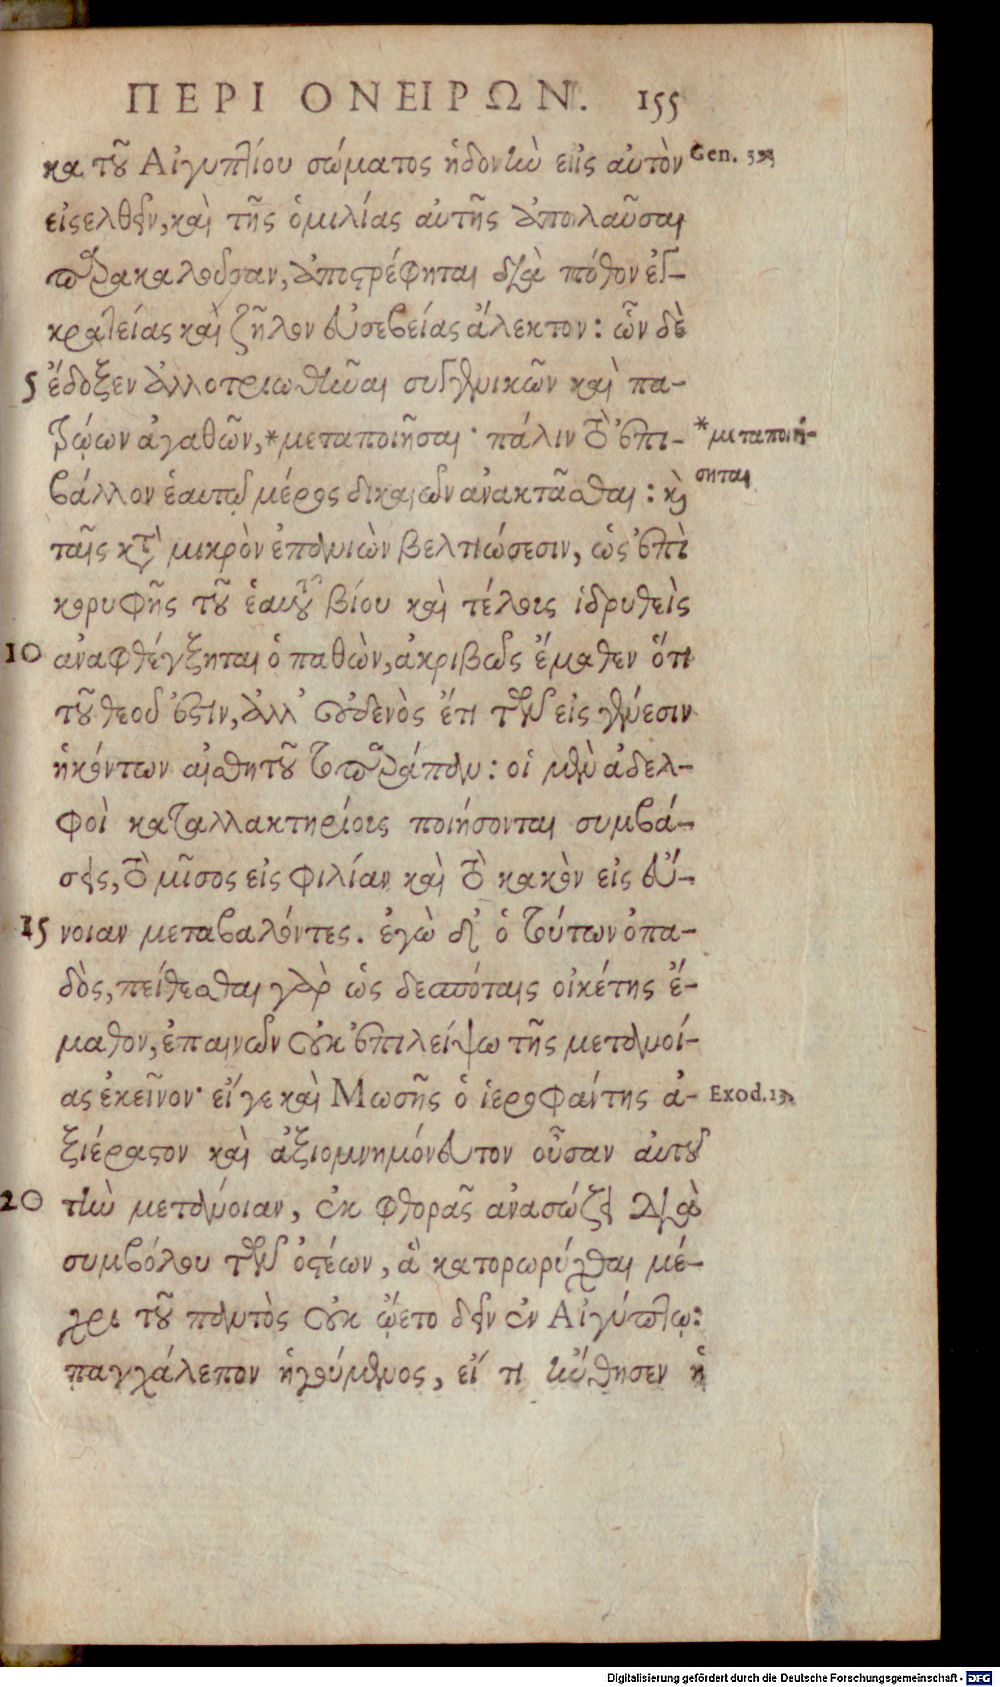 ΠΕΡΙ ΟΝΕΙΡΩΝ. 155
κα τοῦ Αἰγυπτίου σώματος ἡδονὴν εἰς αὐτὸν Gen. 39.
εἰσελθεῖν, καὶ τῆς ὁμιλίας αὐτῆς ἀπολαῦσαι
παρακαλοῦσαν, ἀποστρέφηται διὰ πόθον ἐγ-
κρατείας καὶ ζῆλον εὐσεβείας ἄλεκτον: ὧν δὲ
5 ἔδοξεν ἀλλοτριωθῆναι συγγενικῶν καὶ πα-
τρῴων ἀγαθῶν, *μεταποιῆσαι· πάλιν τὸ ἐπι- *μεταποιή-
βάλλον ἑαυτῷ μέρος δικαιῶν ἀνακτᾶσθαι: καὶ σηται
ταῖς κατὰ μικρὸν ἐπανιὼν βελτιώσεσιν, ὡς ἐπὶ
κορυφῆς τοῦ ἑαυτοῦ βίου καὶ τέλους ἱδρυθεὶς
10 ἀναφθέγξηται ὁ παθὼν, ἀκριβῶς ἔμαθεν ὅτι
τοῦ θεοῦ ἐστιν, ἀλλ’ οὐδενὸς ἔτι τῶν εἰς γένεσιν
ἡκόντων αἰσθητοῦ τοπαράπαν: οἱ μὲν ἀδελ-
φοὶ καταλλακτηρίους ποιήσονται συμβά-
σεις, τὸ μῖσος εἰς φιλίαν καὶ τὸ κακὸν εἰς εὔ-
15 νοιαν μεταβαλόντες. ἐγὼ δ’ ὁ τούτων ὀπα-
δὸς, πείθεσθαι γὰρ ὡς δεσπόταις οἰκέτης ἔ-
μαθον, ἐπαινῶν οὐκ ἐπιλείψω τῆς μετανοί-
ας ἐκεῖνον· εἴγε καὶ Μωσῆς ὁ ἱεροφάντης ἀ- Exod. 13.
ξιέραστον καὶ ἀξιομνημόνευτον οὖσαν αὐτοῦ
20 τὴν μετάνοιαν, ἐκ φθορᾶς ἀνασώζει διὰ
συμβόλου τῶν ὀστέων, ἃ κατορωρύχθαι μέ-
χρι τοῦ παντὸς οὐκ ᾤετο δεῖν ἐν Αἰγύπτῳ:
παγχάλεπον ἡγούμενος, εἴ τι ἤνθησεν ἡ
Digitalisierung gefördert durch die Deutsche Forschungsgemeinschaft - DFG